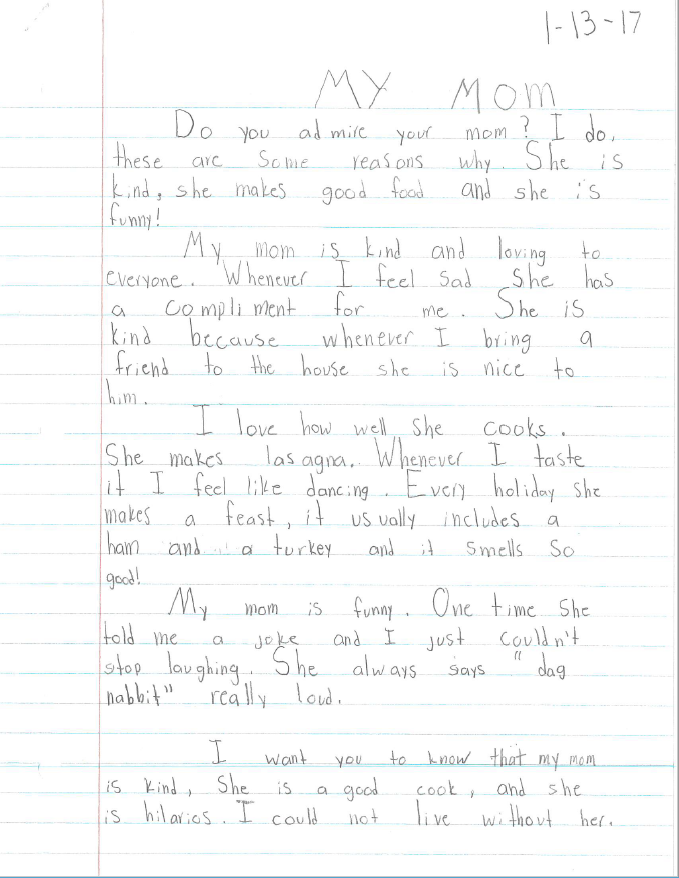 1-13-17
MY MOM
Do you admire your mom? I do,
these are some reasons why. She is
kind, she makes good food and she is
funny!
My mom is kind and loving to
everyone. Whenever I feel sad she has
a compliment for me. She is
kind because whenever I bring a
friend to the house she is nice to
him.
I love how well she cooks.
She makes lasagna. Whenever I taste
it I feel like dancing. Every holiday she
makes a feast, it usually includes a
ham and a turkey and it smells so
good!
My mom is funny. One time she
told me a joke and I just couldn't
stop laughing. She always says "dag
nabbit" really loud.
I want you to know that my mom
is kind, She is a good cook, and she
is hilarios. I could not live without her.